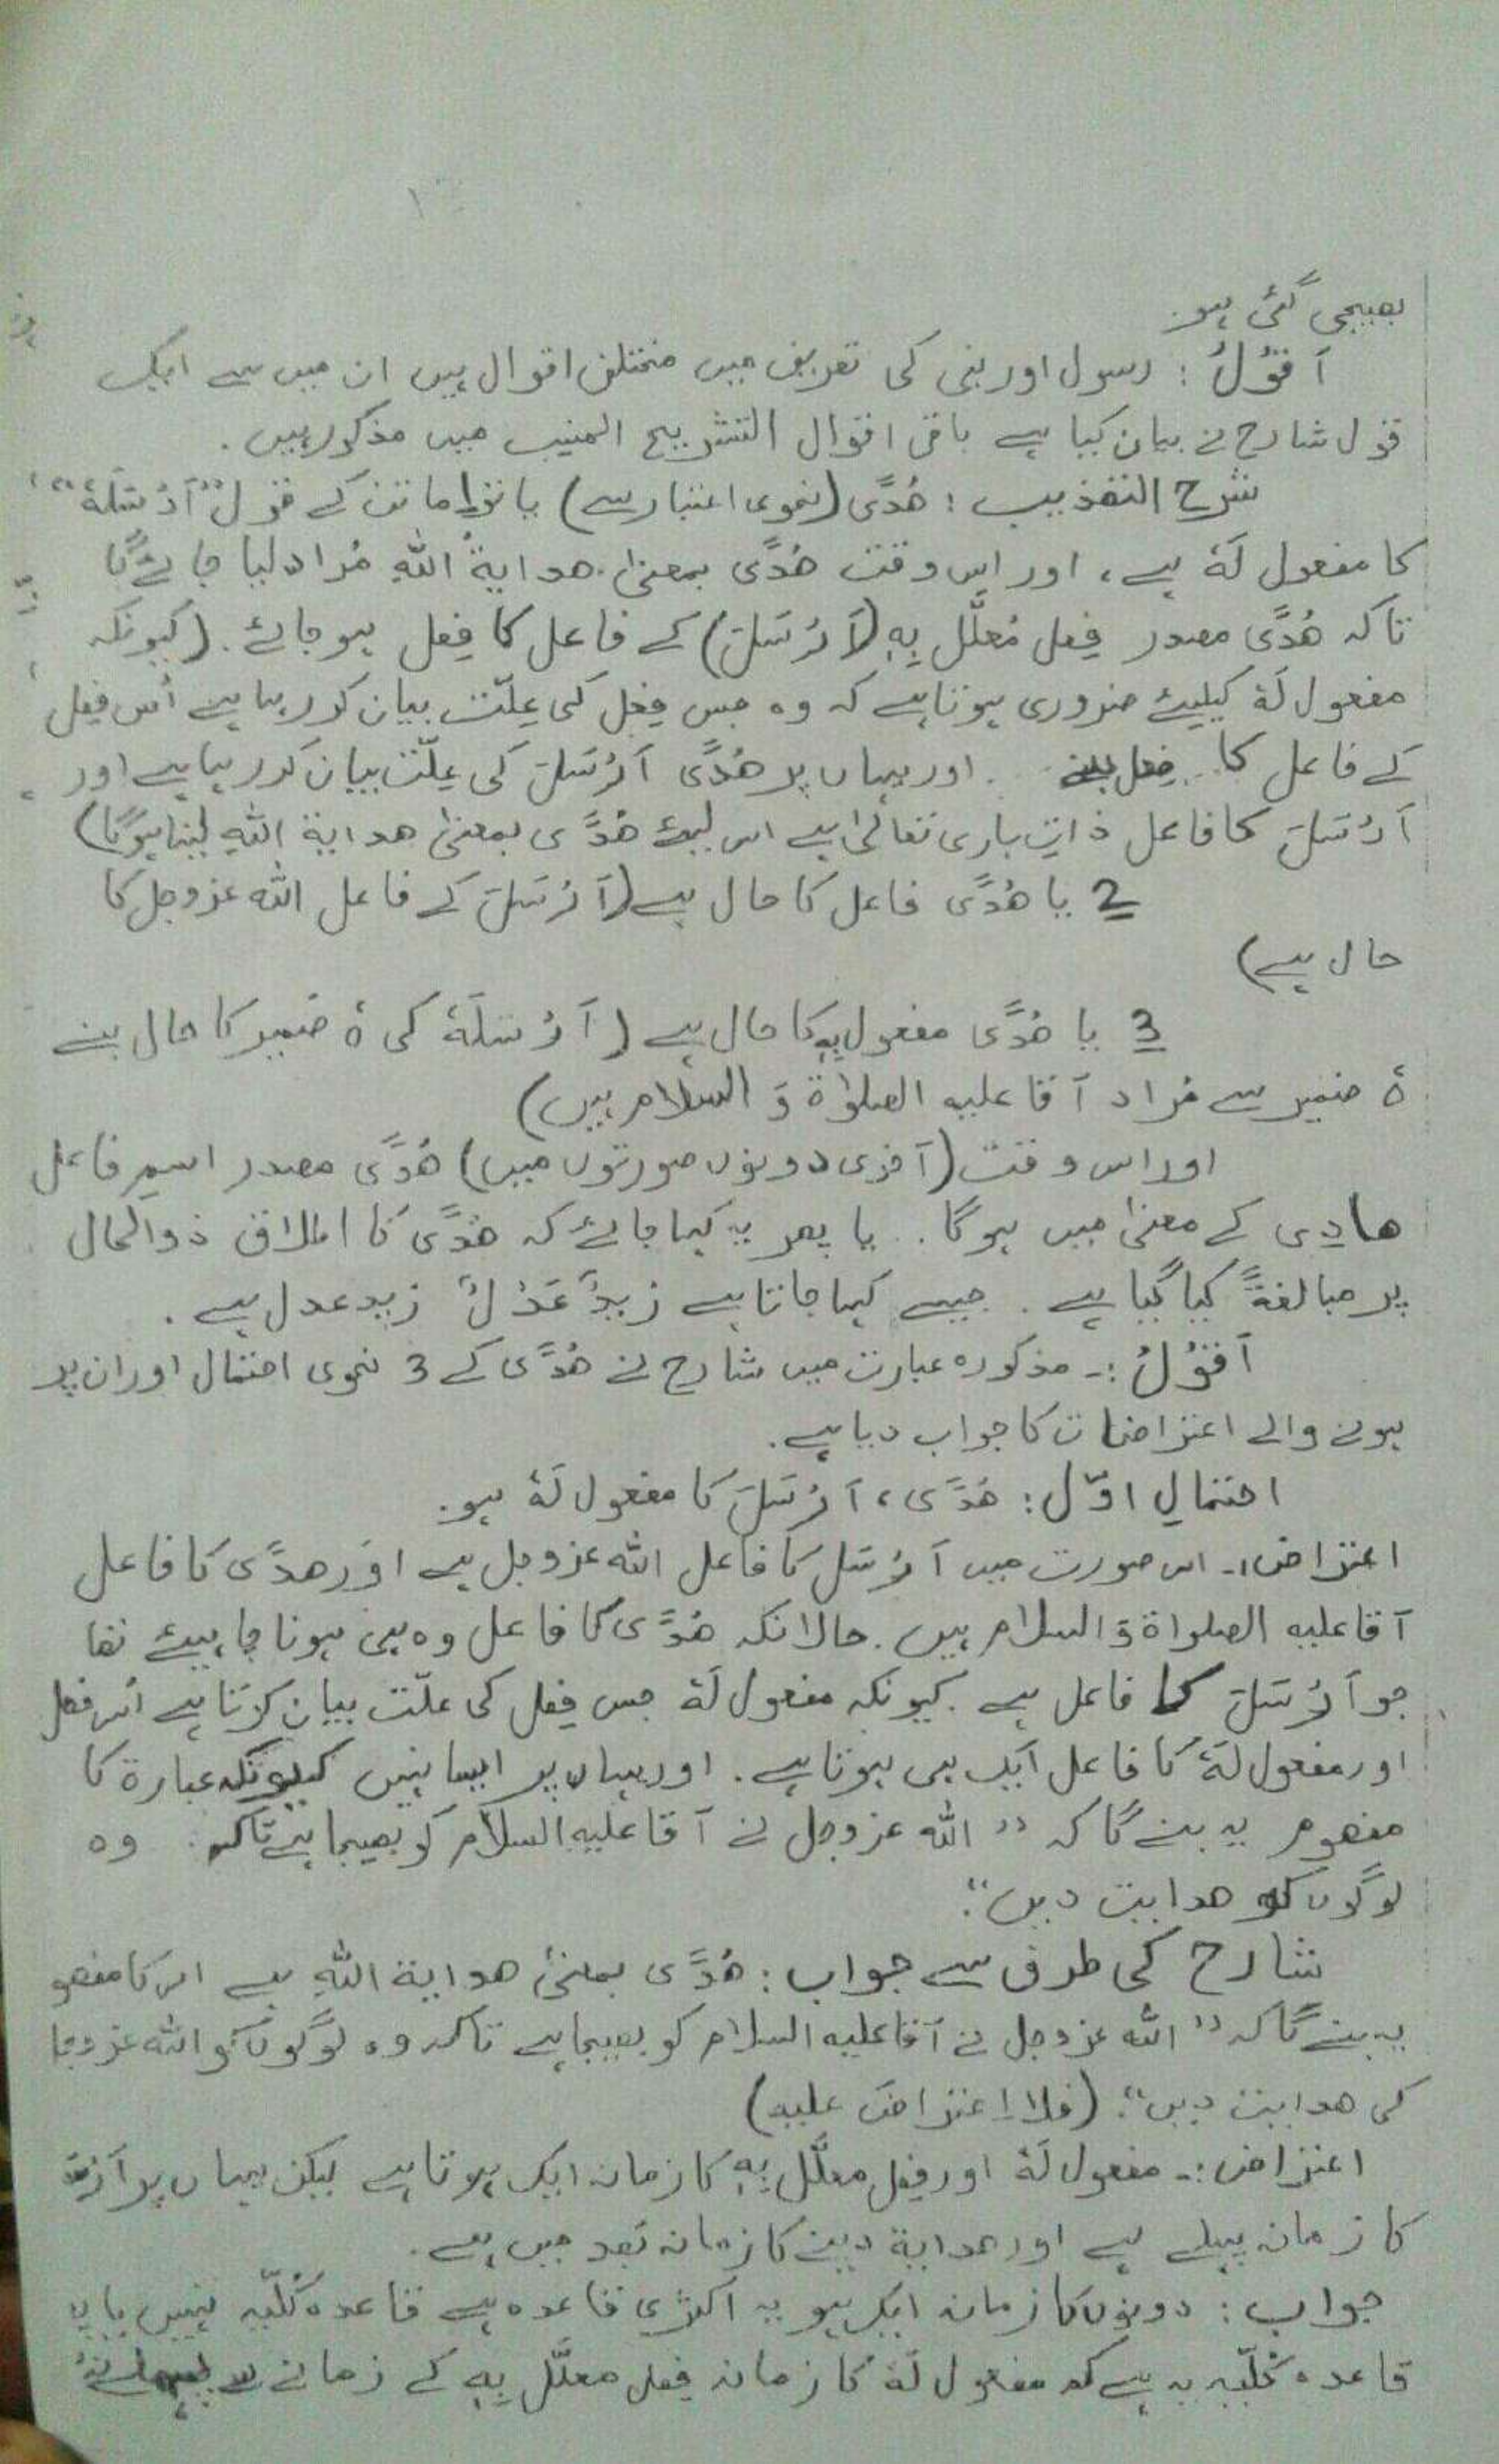 بھیجی گئی ہو۔
اَقُوْلُ : رسول اور نبی کی تعریف میں مختلف اقوال ہیں ان میں سے ایک
قول شارح نے بیان کیا ہے باقی اقوال التشریح المنیب میں مذکور ہیں ۔
شرح التھذیب : ھُدًی (نحوی اعتبار سے) یا تو ماتن کے قول "اَرْسَلَہٗ"
کا مفعول لَہٗ ہے، اور اس وقت ھُدًی بمعنیٰ ھدایۃُ اللّٰہِ مُراد لیا جائے گا
تاکہ ھُدًی مصدر فِعل مُعلَّل بِہٖ (اَرْسَلَ) کے فاعل کا فِعل ہو جائے ۔ (کیونکہ
مفعول لَہٗ کیلیئے ضروری ہوتا ہے کہ وہ جس فِعل کی عِلّت بیان کر رہا ہے اُس فِعل
کے فاعل کا فِعل بنے ۔ اور یہاں پر ھُدًی اَرْسَلَ کی عِلّت بیان کر رہا ہے اور
اَرْسَلَ کا فاعل ذاتِ باری تعالیٰ ہے اس لیئے ھُدًی بمعنیٰ ھدایۃ اللّٰہِ لینا ہوگا)
2 یا ھُدًی فاعل کا حال ہے (اَرْسَلَ کے فاعل اللّٰہ عزوجل کا
حال ہے)
3 یا ھُدًی مفعول بِہٖ کا حال ہے (اَرْسَلَہٗ کی ہٗ ضمیر کا حال بنے
ہٗ ضمیر سے مُراد آقا علیہ الصلوٰۃ وَ السلام ہیں)
اور اس وقت (آخری دونوں صورتوں میں) ھُدًی مصدر اسمِ فاعل
ھادِی کے معنیٰ میں ہوگا .. یا پھر یہ کہا جائے کہ ھُدًی کا اطلاق ذوالحال
پر مبالغۃً کیا گیا ہے . جیسے کہا جاتا ہے زیدٌ عَدْلٌ زید عدل ہے .
اَقُوْلُ :۔ مذکورہ عبارت میں شارح نے ھُدًی کے 3 نحوی احتمال اور ان پر
ہونے والے اعتراضات کا جواب دیا ہے .
احتمالِ اوّل : ھُدًی ، اَرْسَلَ کا مفعول لَہٗ ہو .
اعتراض :۔ اس صورت میں اَرْسَلَ کا فاعل اللّٰہ عزوجل ہے اور ھدًی کا فاعل
آقا علیہ الصلواۃ وَ السلام ہیں . حالانکہ ھُدًی کا فاعل وہ ہی ہونا چاہیئے تھا
جو اَرْسَلَ کا فاعل ہے . کیونکہ مفعول لَہٗ جس فِعل کی علّت بیان کرتا ہے اُس فعل
اور مفعول لَہٗ کا فاعل ایک ہی ہوتا ہے . اور یہاں پر ایسا نہیں کیونکہ عبارۃ کا
مفھوم یہ بنے گا کہ " اللّٰہ عزوجل نے آقا علیہ السلام کو بھیجا ہے تاکہ وہ
لوگوں کو ھدایت دیں".
شارح کی طرف سے جواب : ھُدًی بمعنیٰ ھدایۃ اللّٰہِ ہے اس کا مفھو
یہ بنے گا کہ " اللّٰہ عزوجل نے آقا علیہ السلام کو بھیجا ہے تاکہ وہ لوگوں کو اللّٰہ عزوجل
کی ھدایت دیں". (فلا اِعتراضَ علیہ)
اعتراض :۔ مفعول لَہٗ اور فِعلِ معلَّل بِہٖ کا زمانہ ایک ہوتا ہے لیکن یہاں پر
کا زمانہ پہلے ہے اور ھدایۃ دینے کا زمانہ بَعد میں ہے .
جواب : دونوں کا زمانہ ایک ہو یہ اکثری قاعدہ ہے قاعدہ کُلّیہ نہیں یا یہ
قاعدہ کُلّیہ یہ ہے کہ مفعول لَہٗ کا زمانہ فِعل معلَّل بِہٖ کے زمانے سے